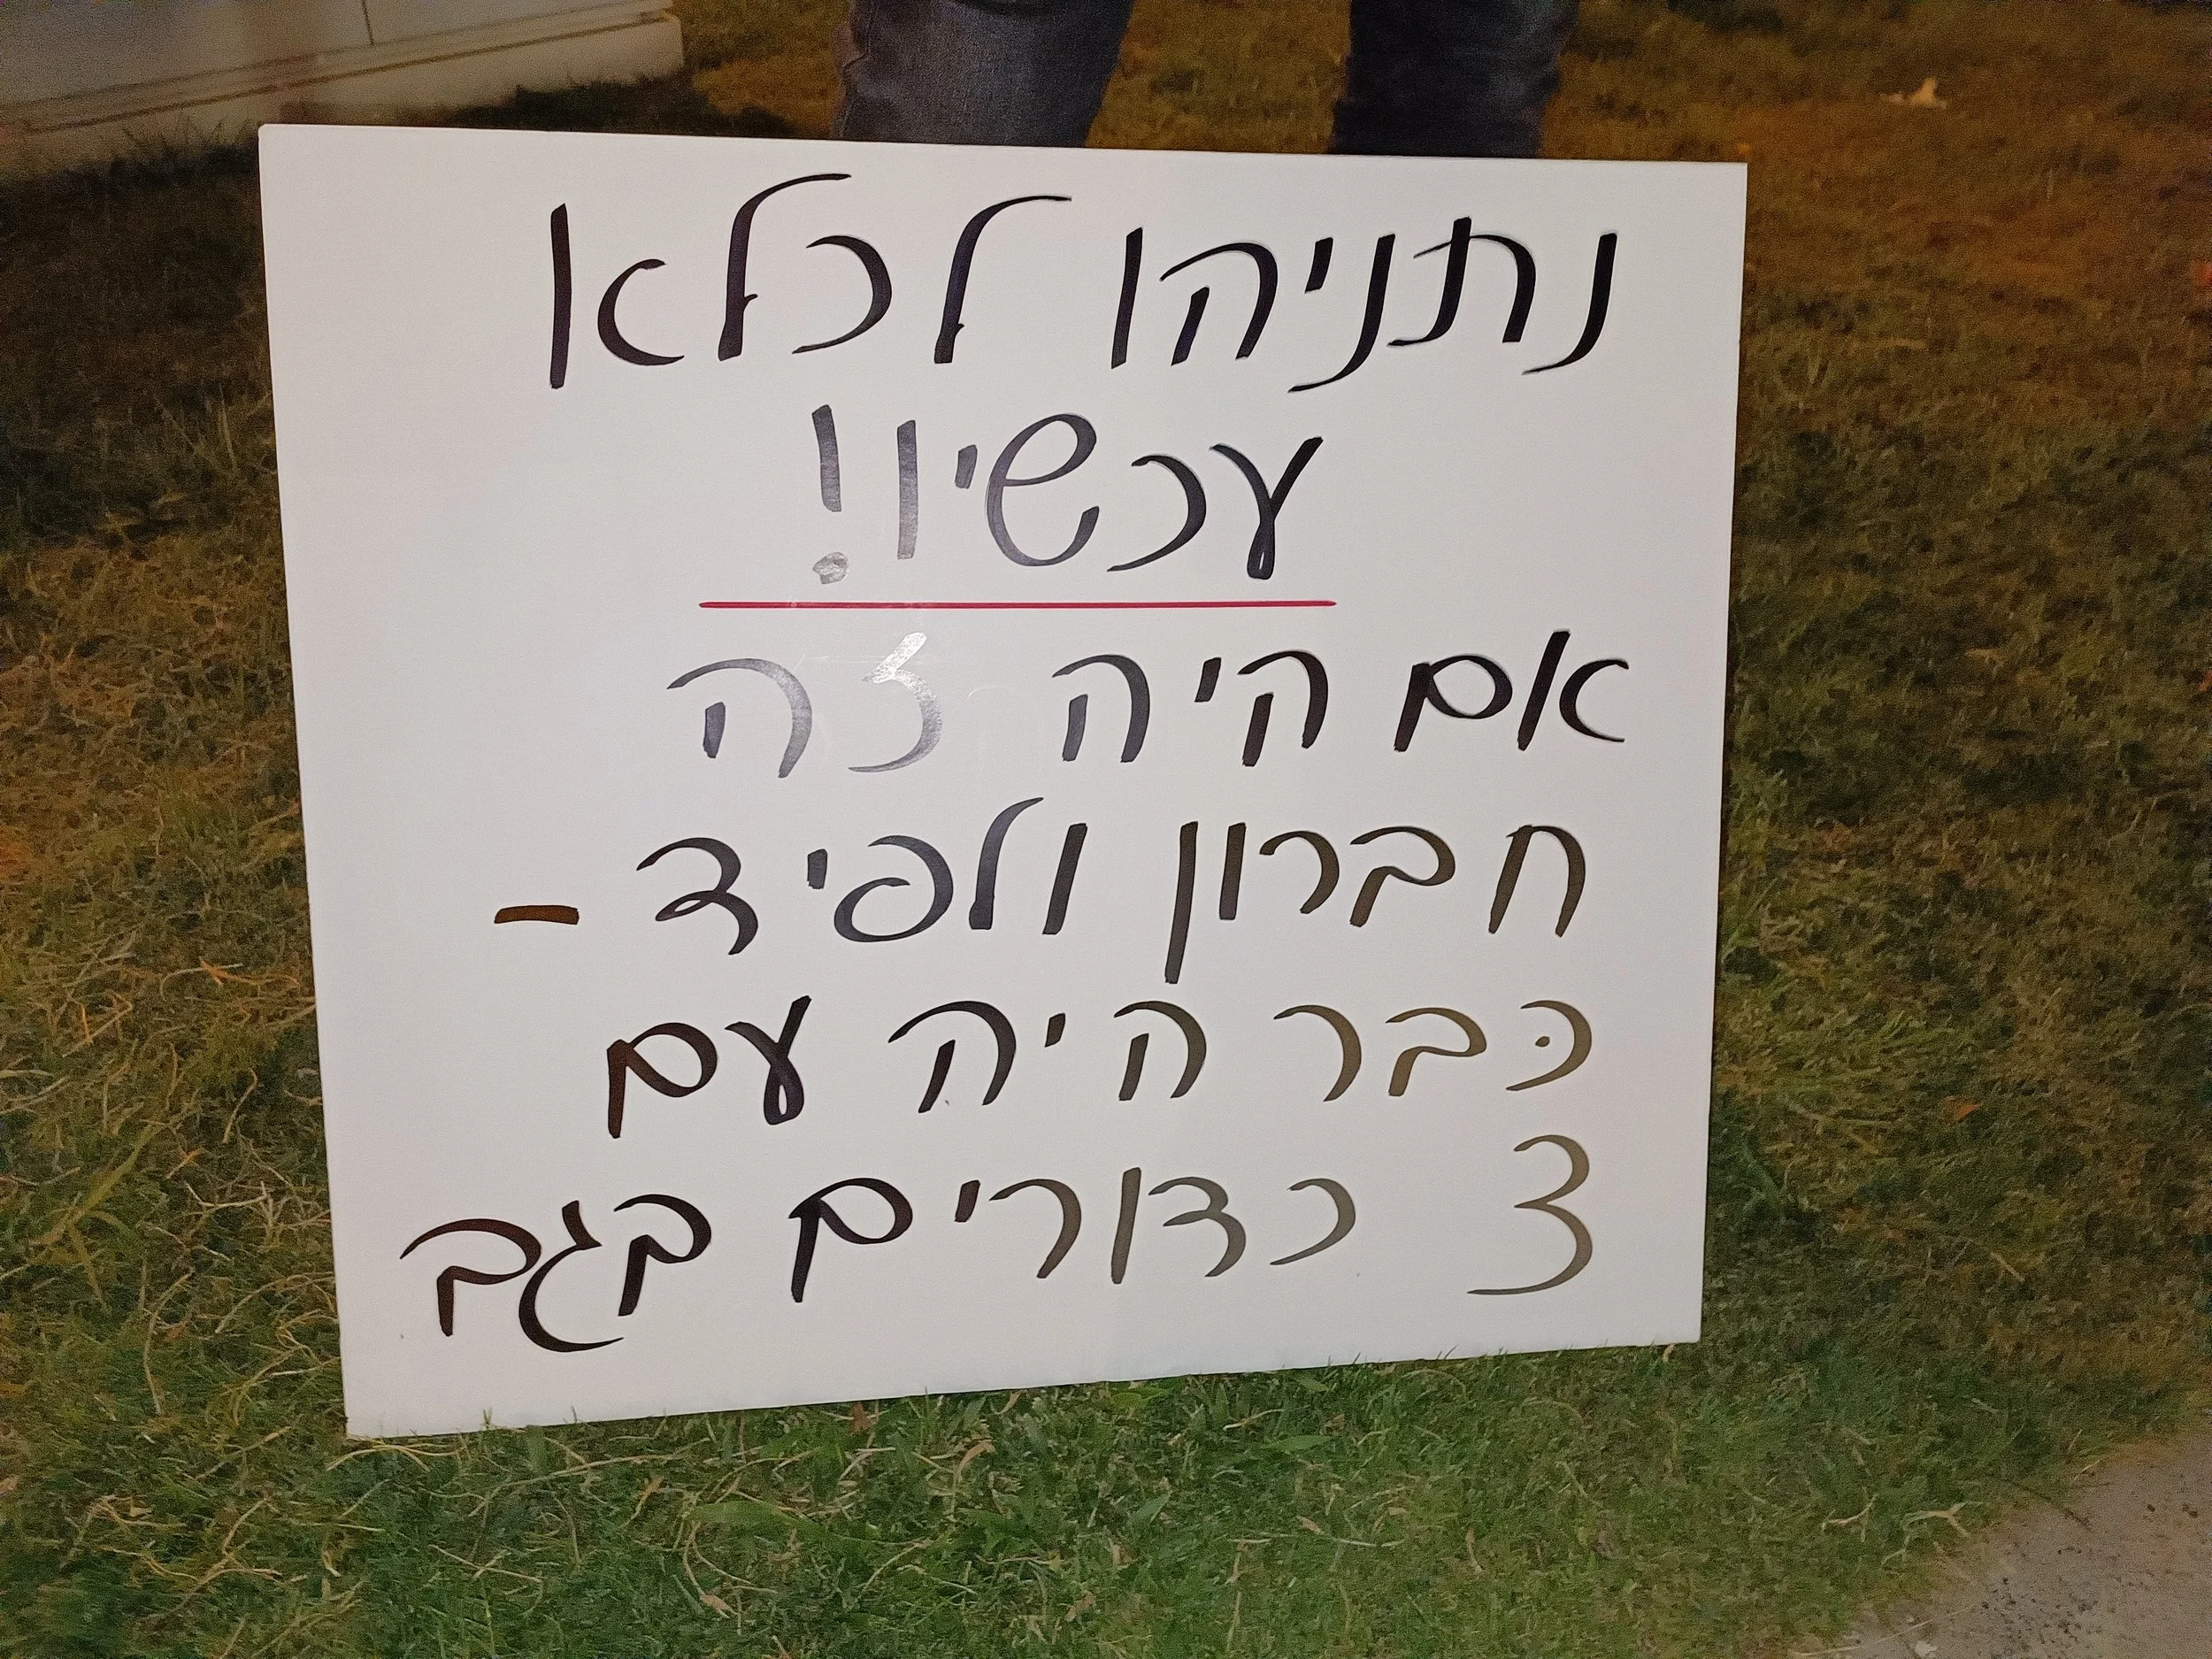 נתניהו לכלא
עכשיו!
אם היה זה
חברון ולפיד -
כבר היה עם
3 כדורים בגב